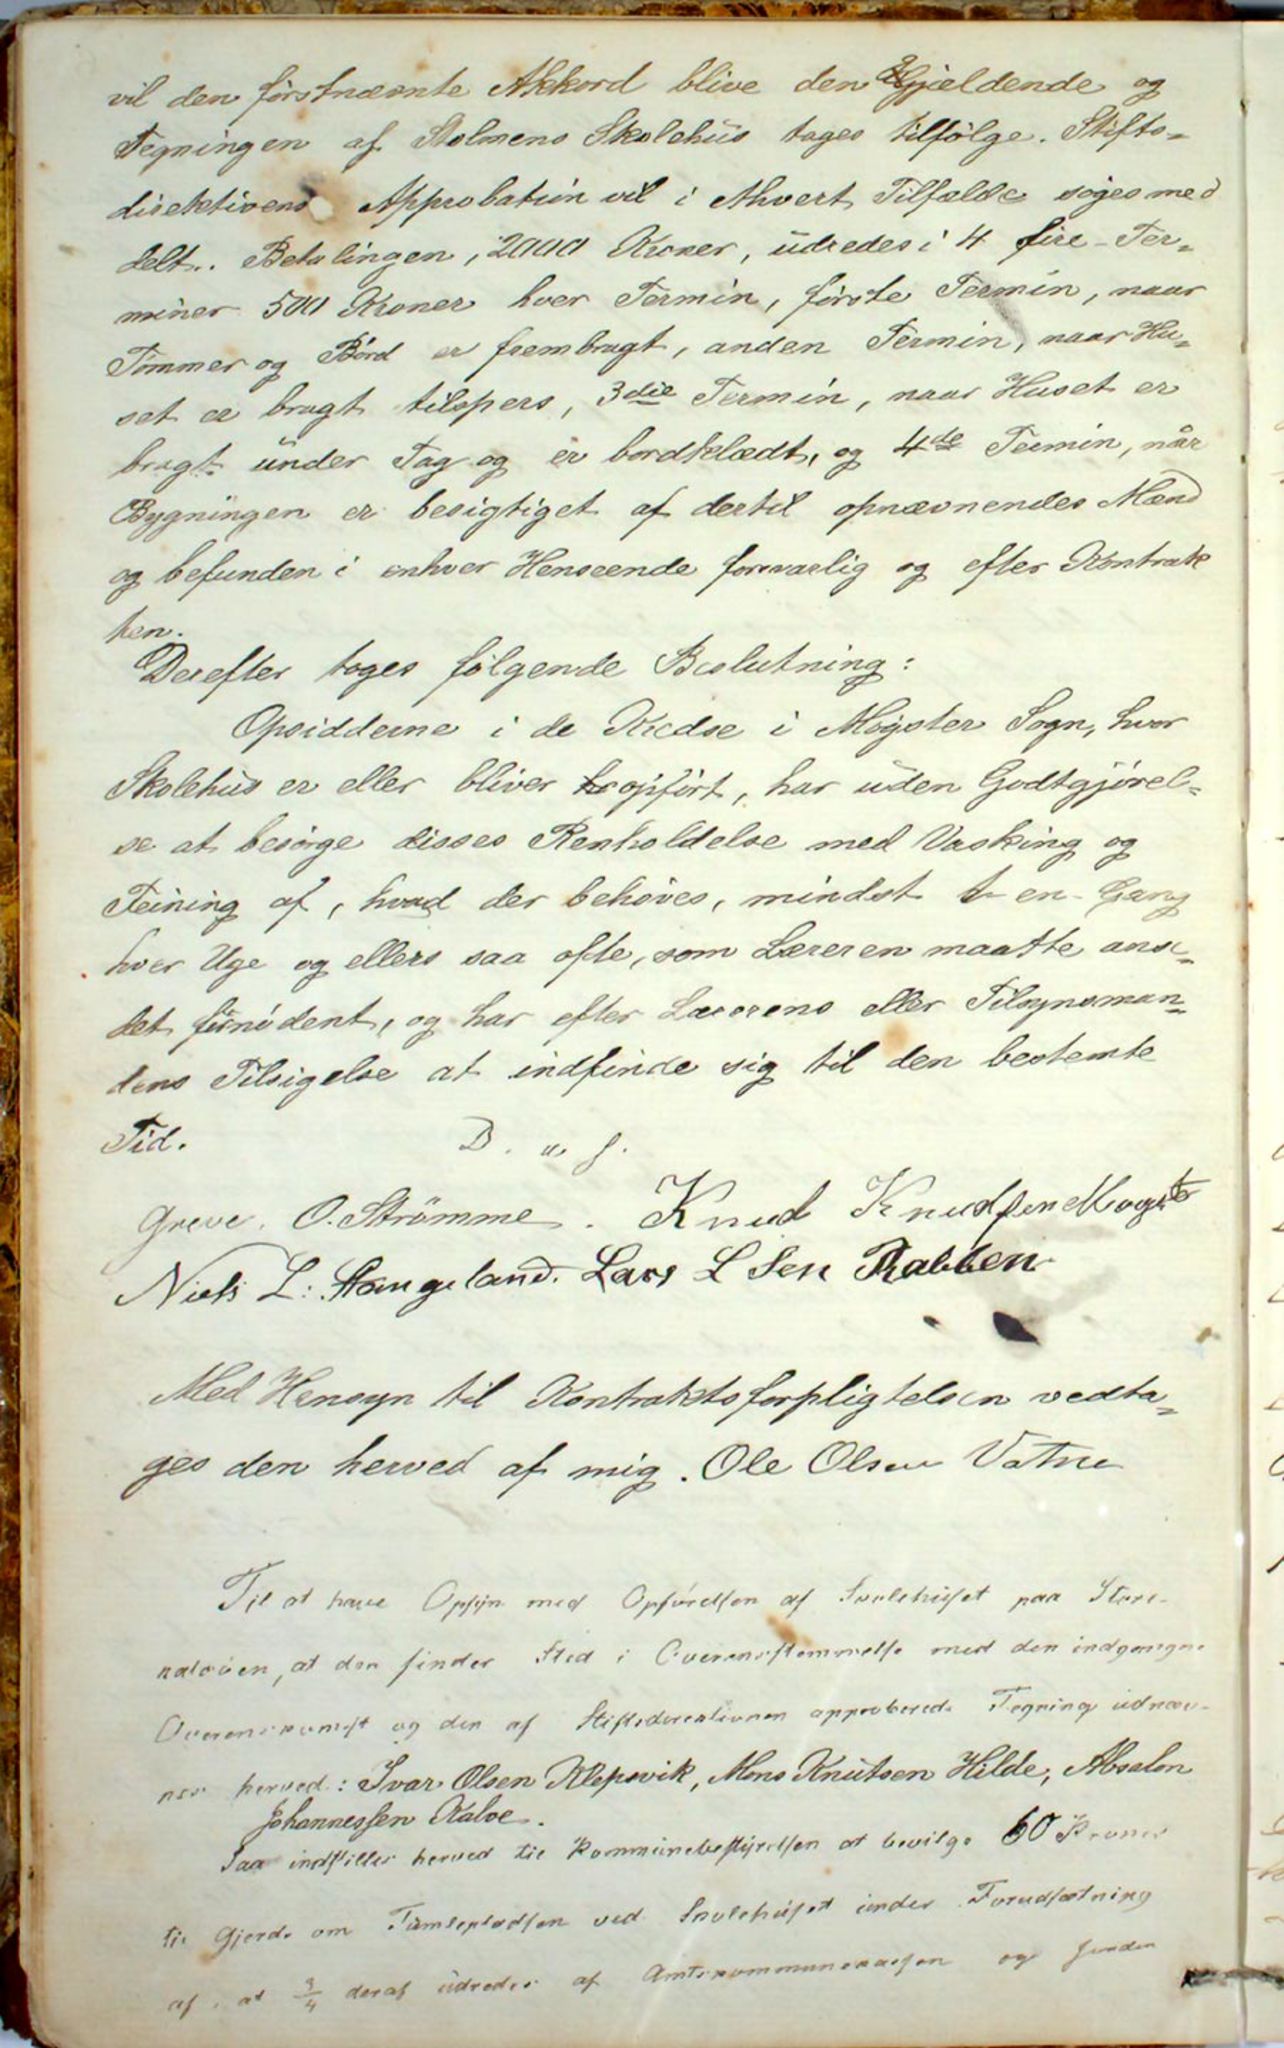 vil den førstnævnte Akkord blive den Gjældende og
Tegningen af Stolmens Skolehus tages tilfølge. Stifts-
direktionens Approbation vil i Ahvert Tilfælde søges med
delt. Betalingen, 2000 Kroner, udredes i 4 fire Ter-
miner 500 Kroner hver Termin, første Termin, naar
Tømmer og Bord er frembragt, anden Termin, naar Hu-
set er bragt tilspers, 3die Termin, naar Huset er
bragt under Tag og er bordklædt, og 4de Termin, når
Bygningen er besigtiget af dertil opnævnendes Mænd
og befunden i enhver Henseende forsvarlig og efter Kontrak
ten.
Derefter toges følgende Beslutning:
Opsidderne i de Kredse i Møgster Sogn, hvor
Skolehus er eller bliver opført, har uden Godtgjørel-
se at besørge disses Renholdelse med Vasking og
Feining af, hvad der behøves, mindst en Gang
hver Uge og ellers saa ofte, som Læreren maatte anse
det fornødent, og har efter Lærerens eller Tilsynsman-
dens Tilsigelse at indfinde sig til den bestemte
Tid.
D. u. s.
Greve. O. Strømme. Knud Knudsen Møgster
Niels L. Stangeland. Lars L Sen Rabben
Med Hensyn til Kontraktsforpligtelsen vedta-
ges den herved af mig. Ole Olsen Vatne
Til at have Opsyn med Opførelsen af Skolehuset paa Store-
kalsøen, at den finder Sted i Overensstemmelse med den indgangne
Overenskomst og den af Stiftsdirektionen approberede Tegning udnæv-
nes herved: Ivar Olsen Klepsvik, Mons Knutsen Hilde, Absalon
Johannessen Kalve.
Saa indstilles herved til Kommunebestyrelsen at bevilge 60 Kroner
til Gjerde om Tumlepladsen ved Skolehuset under Forudsætning
af, at 3/4 deraf udredes af Amtskommunekassen og